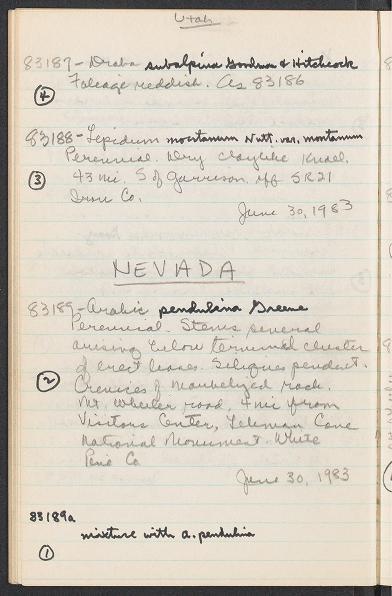 Utah
83187- Draba subalpina Goodman & Hitchcock
Foliage reddish. As 83186
4
83188- Lepidium montanum Nutt. var. montanum
Perennial. Dry claylike knoll.
3
43 mi. S of Garrison, off SR21
Iron Co.
June 30, 1983
NEVADA
83189- Arabis pendulina Greene
Perennial. Stems several
arising below terminal cluster
of erect leaves. Siliques pendent.
2
Crevices of marbelized rock.
Mt. Wheeler road, 4 mi from
Visitors Center, Lehman Cave
National Monument. White
Pine Co
June 30, 1983
83189a
mixture with A. pendulina
1